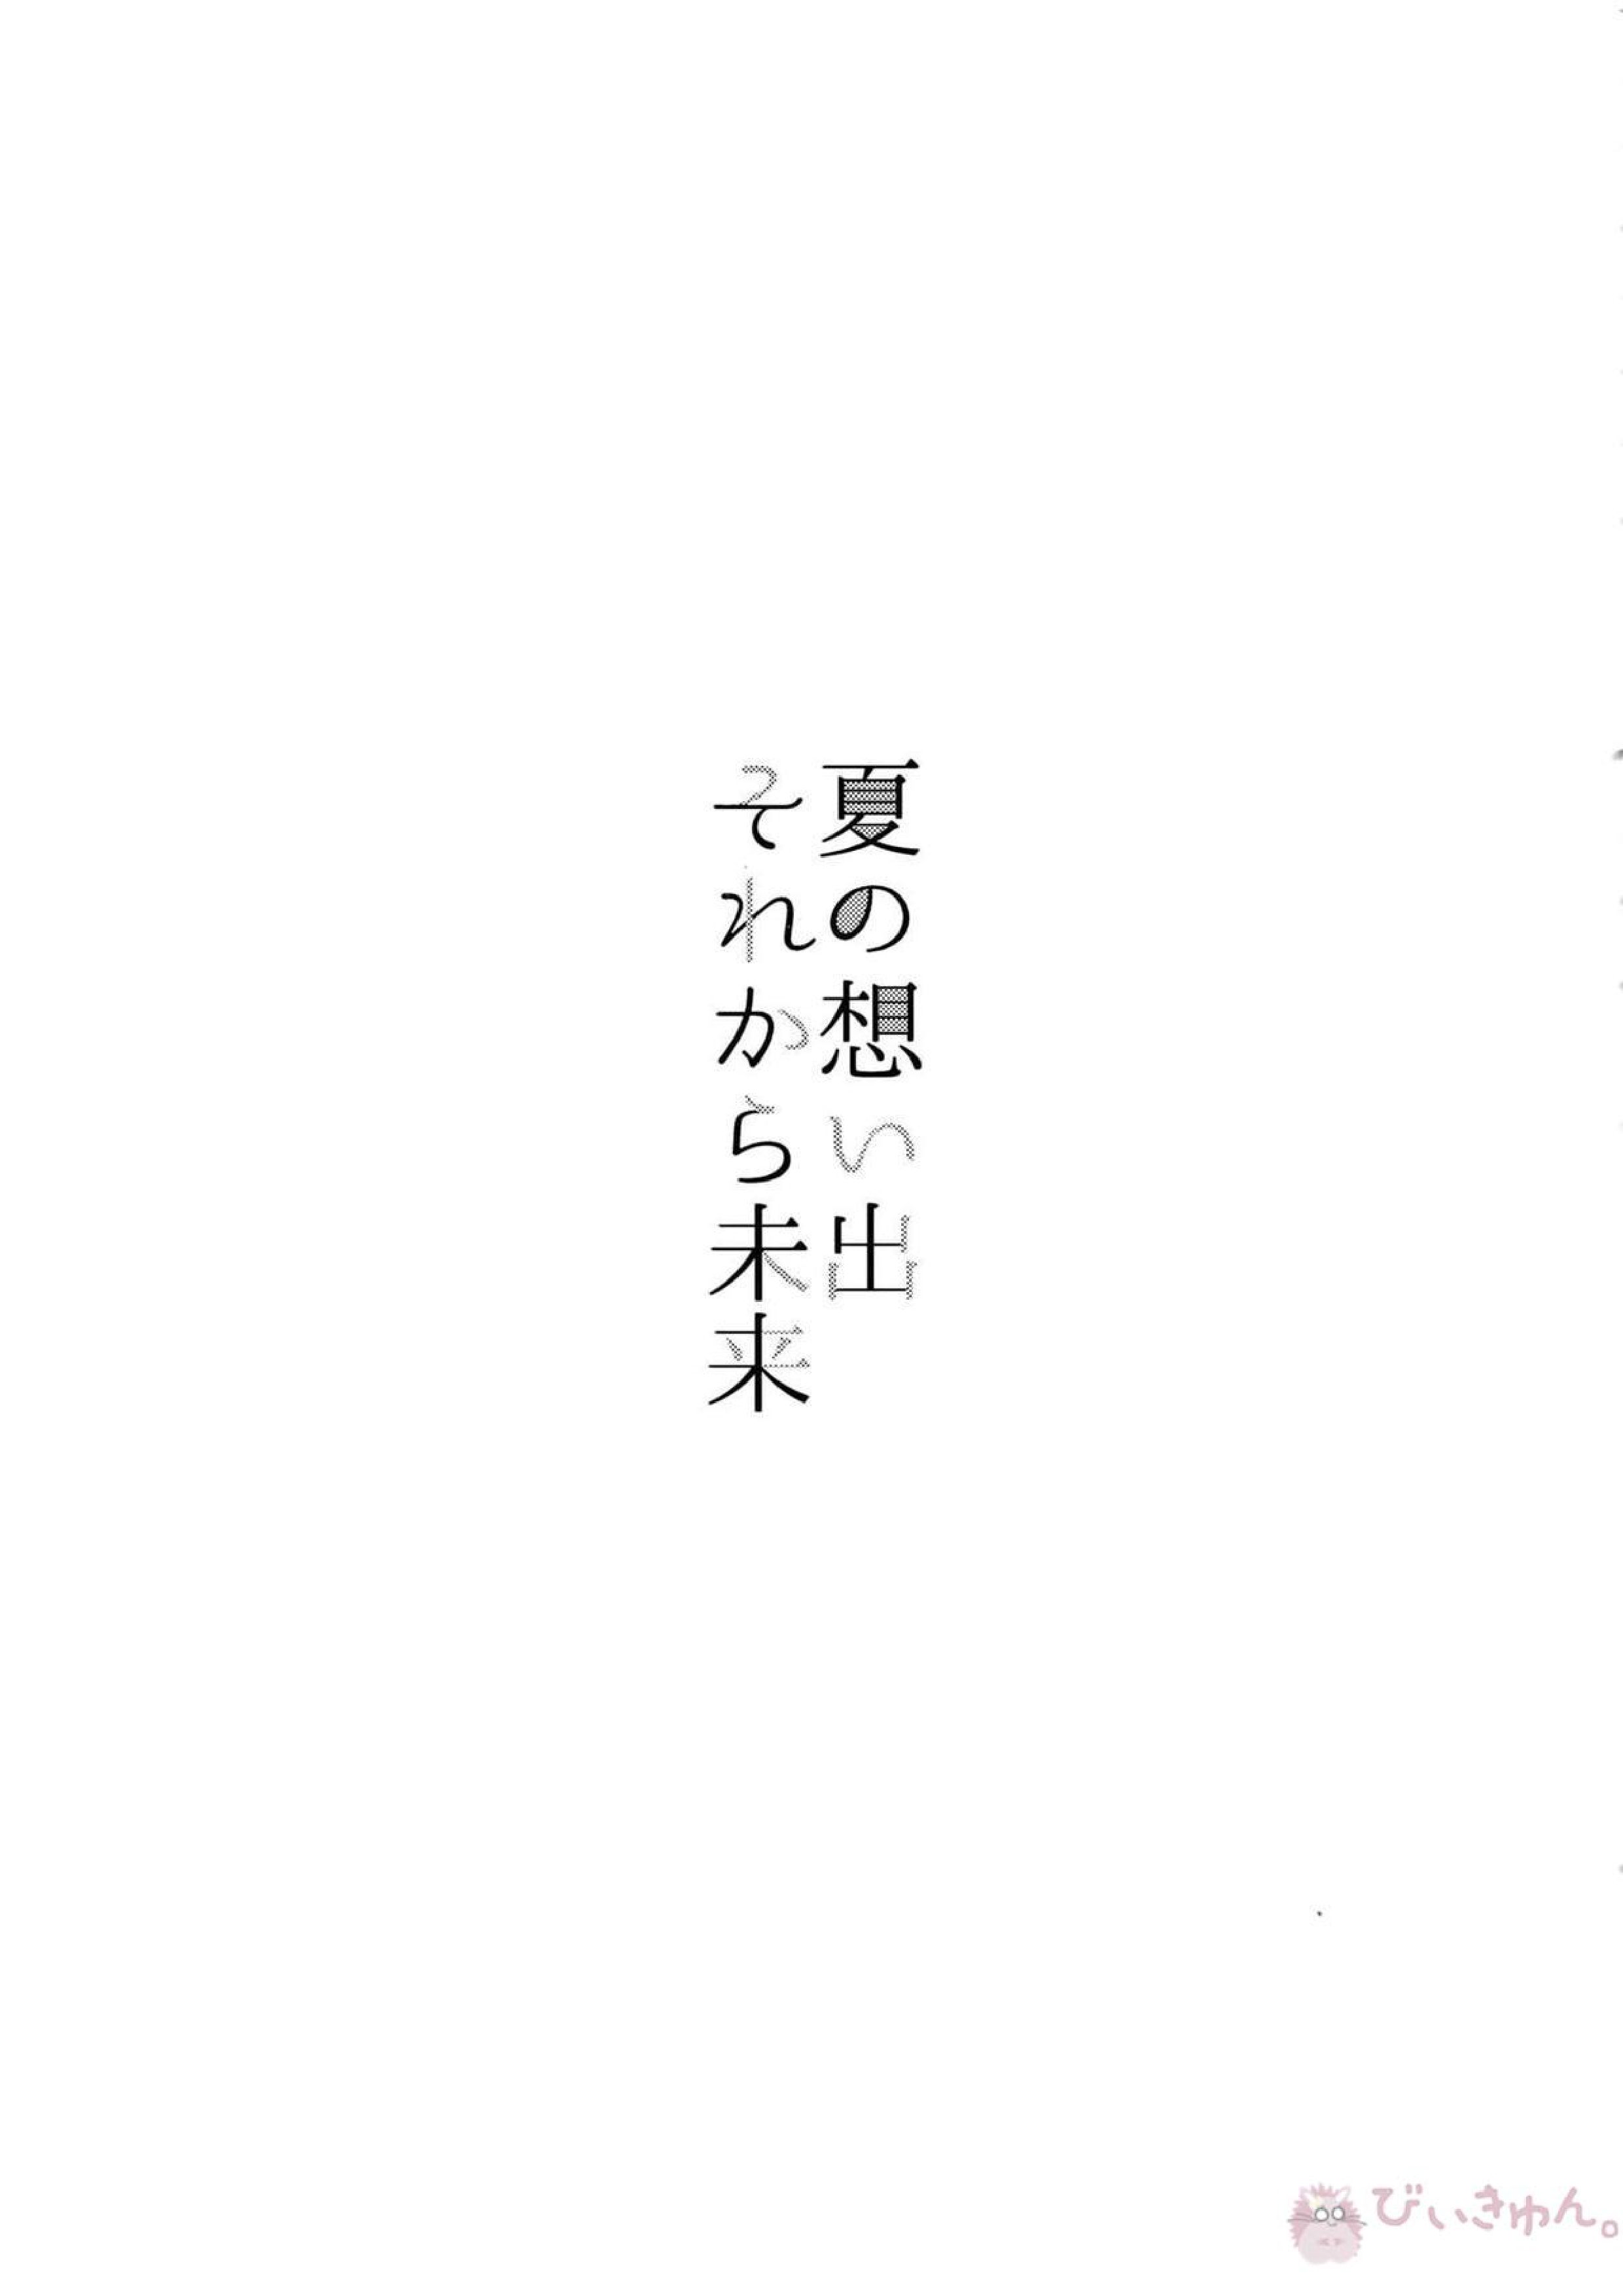 夏の想い出
それから未来
びぃきゅん。